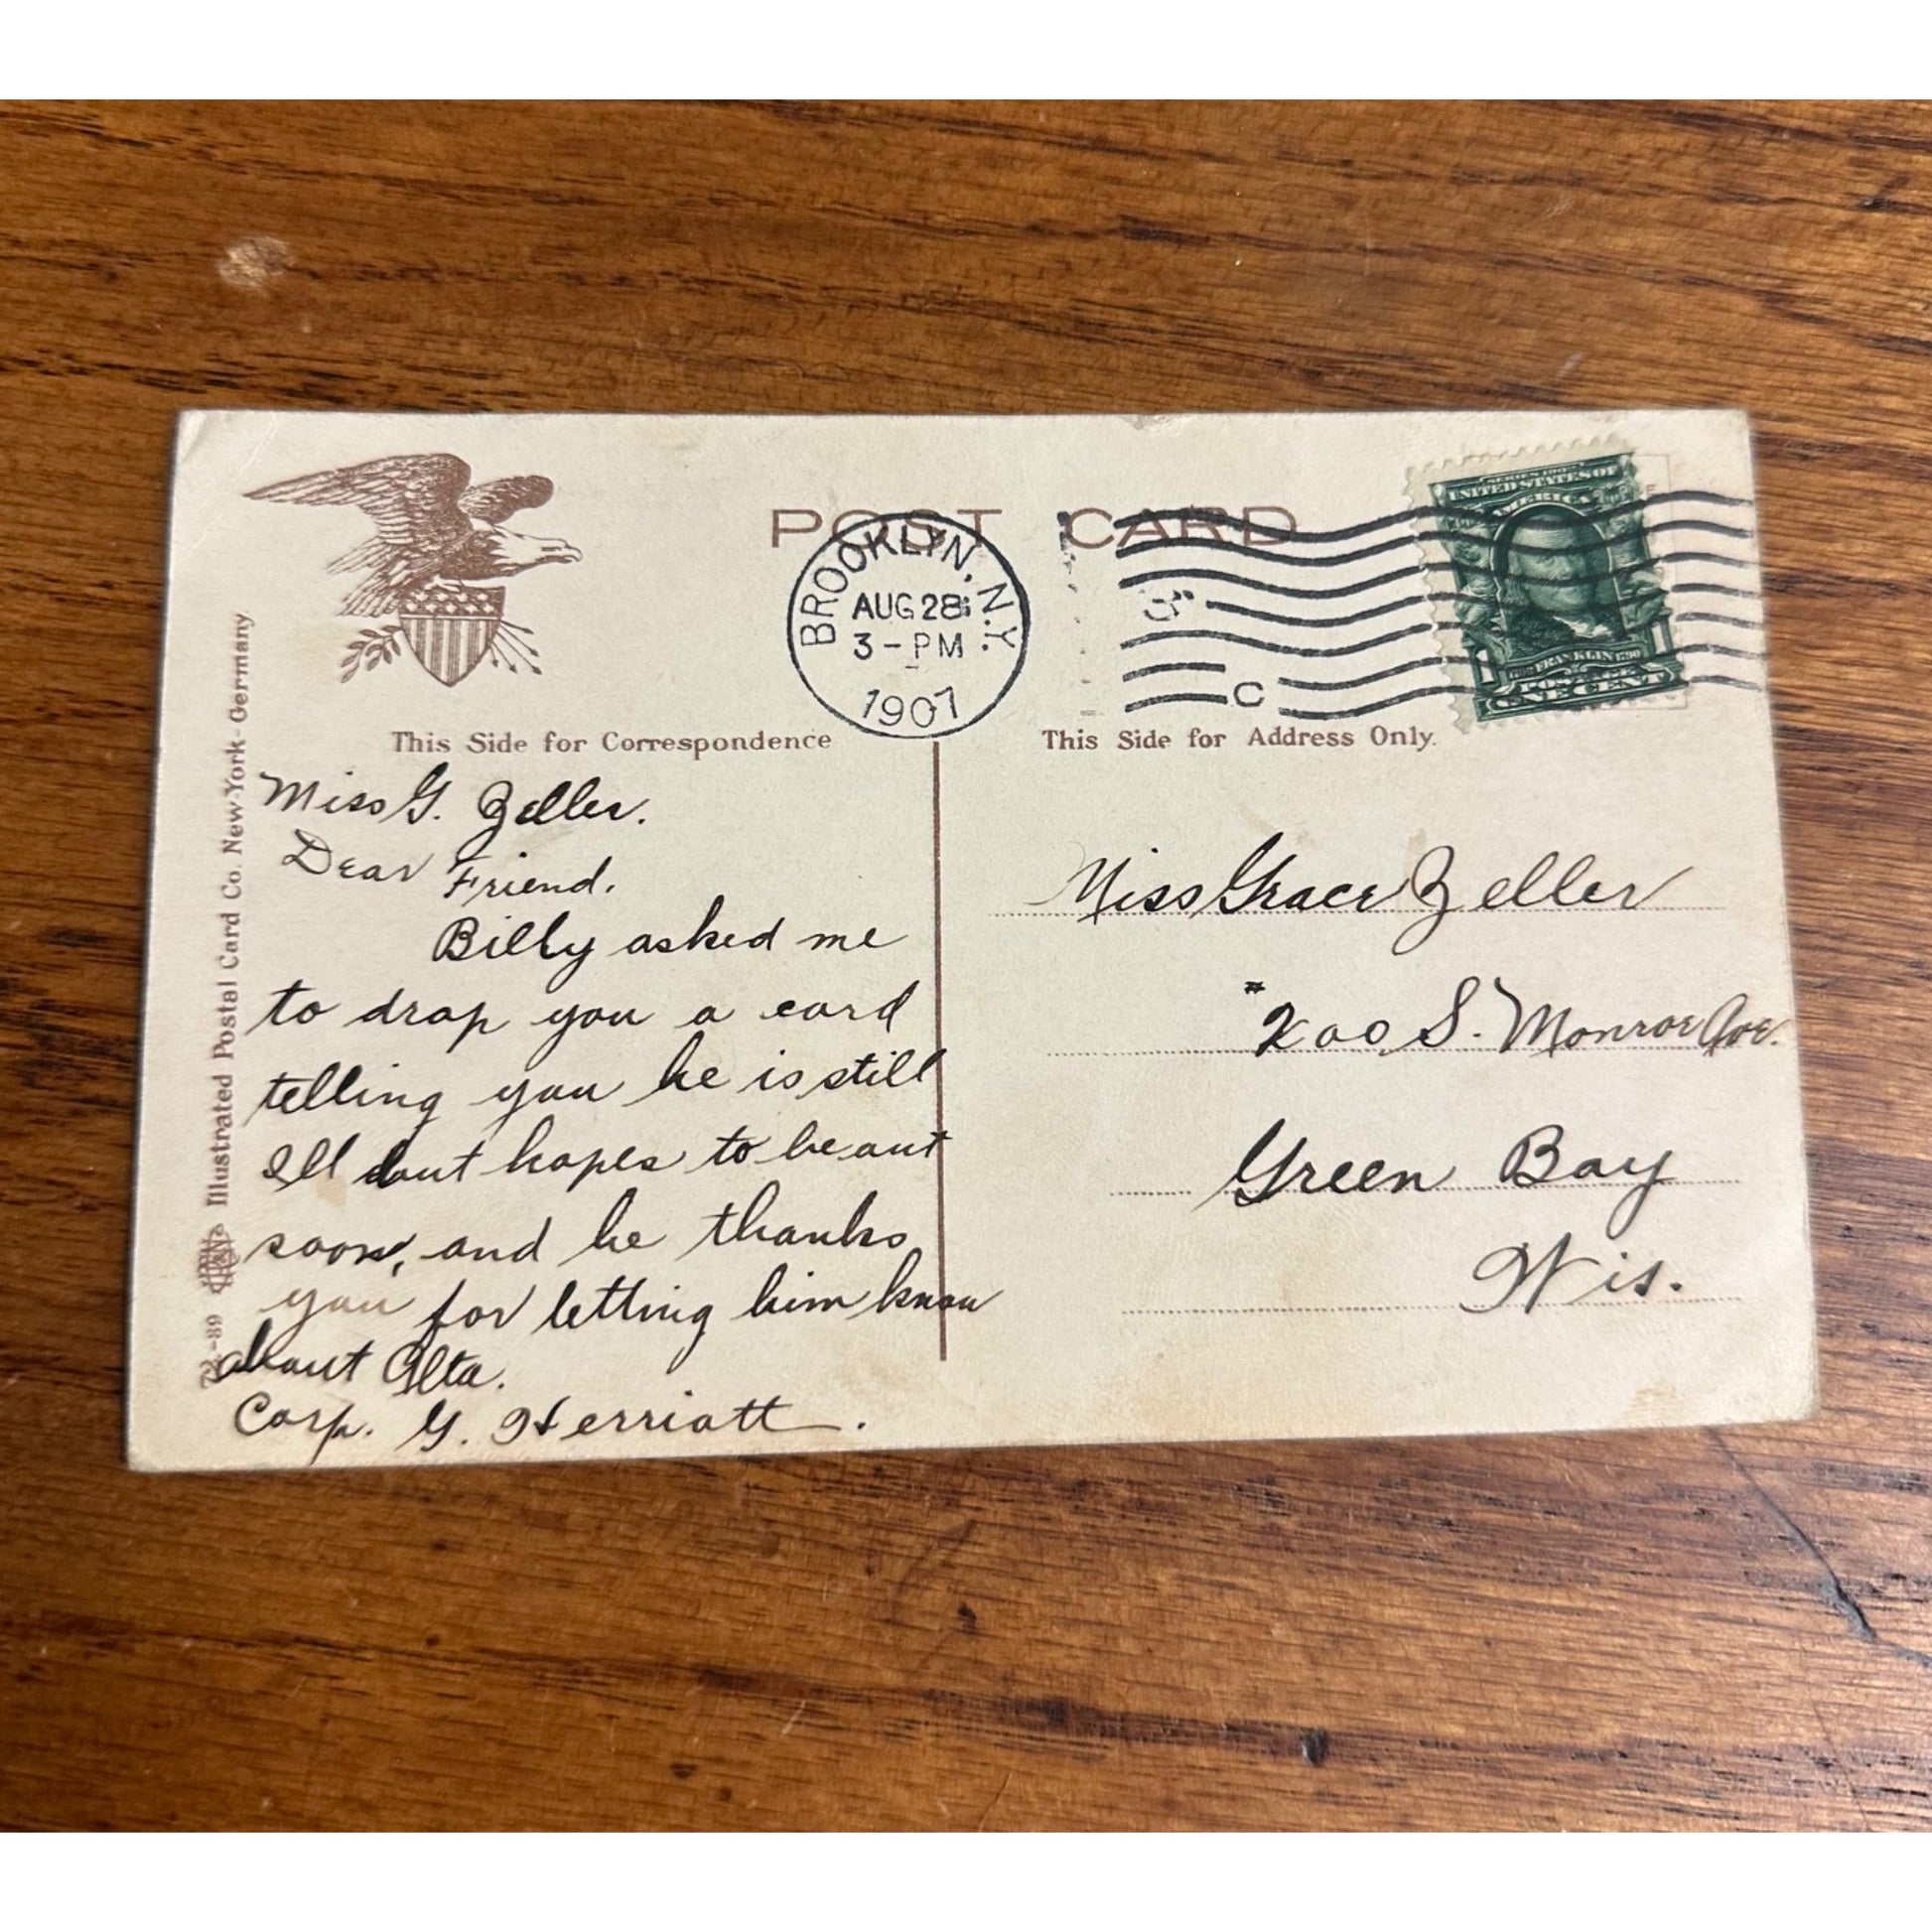 POST CARD
BROOKLYN, N.Y.
AUG 28
3-PM
1907
3
C
SERIES 1902
UNITED STATES OF
AMERICA
FRANKLIN 1790
POSTAGE
ONE CENT
1 1
This Side for Correspondence
Miss G. Zeller.
Dear Friend.
Billy asked me
to drop you a card
telling you he is still
Ill but hopes to be out
soon, and he thanks
you for letting him know
about Alta.
Corp. G. Herriott.
This Side for Address Only.
Miss Grace Zeller
# 200 S. Monroe Ave.
Green Bay
Wis.
72-89 Illustrated Postal Card Co. New-York-Germany.